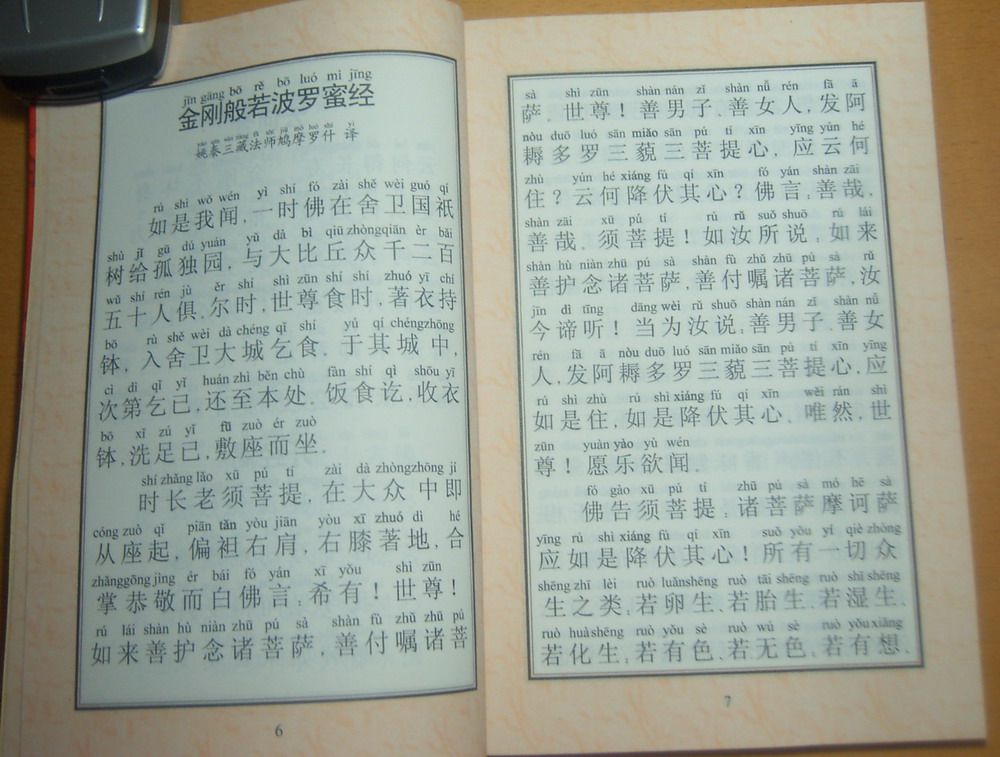 jīn gāng bō rě bō luó mì jīng
金刚般若波罗蜜经
姚秦三藏法师鸠摩罗什 译
rú shì wǒ wén yì shí fó zài shě wèi guó qí
如是我闻,一时佛在舍卫国祇
shù jǐ gū dú yuán yǔ dà bì qiū zhòng qiān èr bǎi
树给孤独园,与大比丘众千二百
wǔ shí rén jù ěr shí shì zūn shí shí zhuó yī chí
五十人俱.尔时,世尊食时,著衣持
bō rù shě wèi dà chéng qǐ shí yú qí chéng zhōng
钵,入舍卫大城乞食.于其城中,
cì dì qǐ yǐ huán zhì běn chù fàn shí qì shōu yī
次第乞已,还至本处.饭食讫,收衣
bō xǐ zú yǐ fū zuò ér zuò
钵,洗足已,敷座而坐.
shí zhǎng lǎo xū pú tí zài dà zhòng zhōng jí
时长老须菩提,在大众中即
cóng zuò qǐ piān tǎn yòu jiān yòu xī zhuó dì hé
从座起,偏袒右肩,右膝著地,合
zhǎng gōng jìng ér bái fó yán xī yǒu shì zūn
掌恭敬而白佛言:希有!世尊!
rú lái shàn hù niàn zhū pú sà shàn fù zhǔ zhū pú
如来善护念诸菩萨,善付嘱诸菩
6
sà shì zūn shàn nán zǐ shàn nǚ rén fā ā
萨.世尊!善男子、善女人,发阿
nòu duō luó sān miǎo sān pú tí xīn yīng yún hé
耨多罗三藐三菩提心,应云何
zhù yún hé xiáng fú qí xīn fó yán shàn zāi
住?云何降伏其心?佛言:善哉,
shàn zāi xū pú tí rú rǔ suǒ shuō rú lái
善哉.须菩提!如汝所说:如来
shàn hù niàn zhū pú sà shàn fù zhǔ zhū pú sà rǔ
善护念诸菩萨,善付嘱诸菩萨,汝
jīn dì tīng dāng wèi rǔ shuō shàn nán zǐ shàn nǚ
今谛听!当为汝说:善男子、善女
rén fā ā nòu duō luó sān miǎo sān pú tí xīn yīng
人,发阿耨多罗三藐三菩提心,应
rú shì zhù rú shì xiáng fú qí xīn wěi rán shì
如是住,如是降伏其心.唯然,世
zūn yuàn yào yù wén
尊!愿乐欲闻.
fó gào xū pú tí zhū pú sà mó hē sà
佛告须菩提,诸菩萨摩诃萨
yīng rú shì xiáng fú qí xīn suǒ yǒu yí qiè zhòng
应如是降伏其心!所有一切众
shēng zhī lèi ruò luǎn shēng ruò tāi shēng ruò shī shēng
生之类:若卵生、若胎生、若湿生、
ruò huà shēng ruò yǒu sè ruò wú sè ruò yǒu xiǎng
若化生;若有色、若无色;若有想、
7